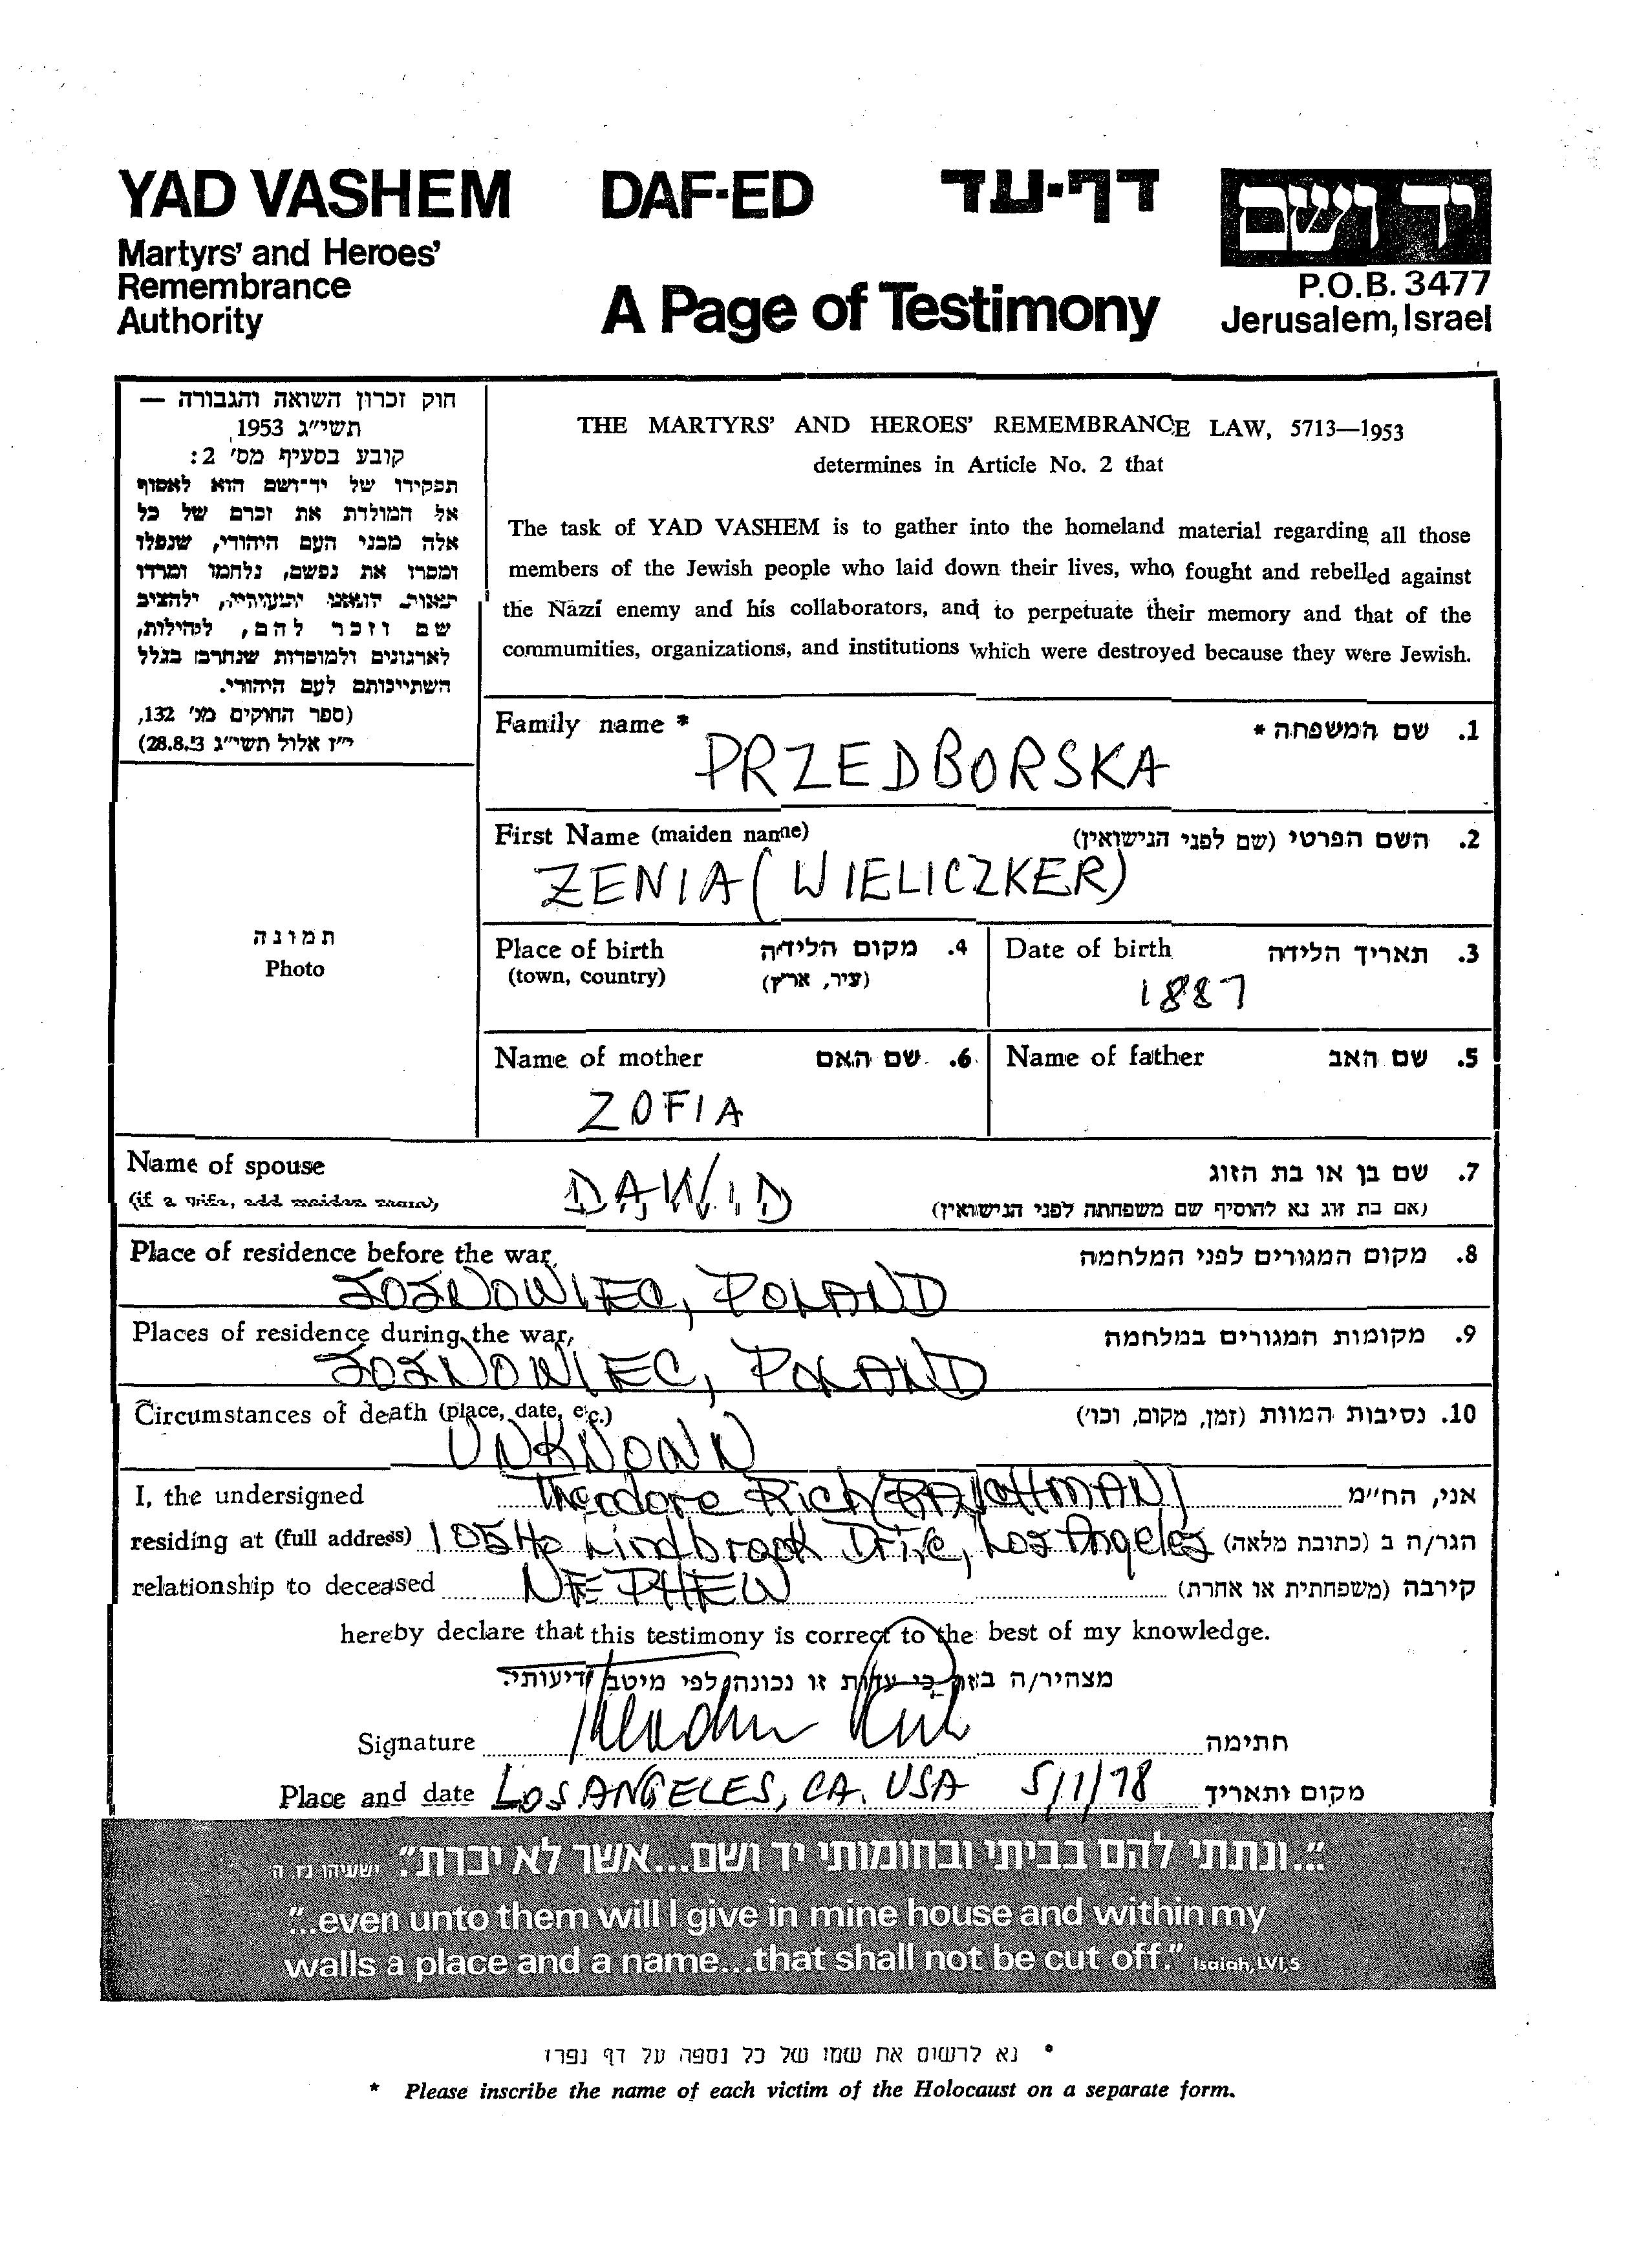 YAD VASHEM
Martyrs' and Heroes'
Remembrance
Authority
DAF-ED דף-עד
A Page of Testimony
יד ושם
P.O.B. 3477
Jerusalem, Israel
חוק זכרון השואה והגבורה —
תשי״ג 1953,
קובע בסעיף מס' 2:
תפקידו של יד־ושם הוא לאסוף
אל המולדת את זכרם של כל
אלה מבני העם היהודי, שנפלו
ומסרו את נפשם, נלחמו ומרדו
שם וזכר להם, לקהילות,
לארגונים ולמוסדות שנחרבו בגלל
השתייכותם לעם היהודי.
(ספר החוקים מס' 132,
י״ז אלול תשי״ג 28.8.53)
THE MARTYRS' AND HEROES' REMEMBRANCE LAW, 5713—1953
determines in Article No. 2 that
The task of YAD VASHEM is to gather into the homeland material regarding all those
members of the Jewish people who laid down their lives, who fought and rebelled against
the Nazi enemy and his collaborators, and to perpetuate their memory and that of the
commumities, organizations, and institutions which were destroyed because they were Jewish.
Family name * 1. שם המשפחה *
PRZEDBORSKA
First Name (maiden name) 2. השם הפרטי (שם לפני הנישואין)
ZENIA (WIELICZKER)
Place of birth 4. מקום הלידה
(town, country) (עיר, ארץ)
Date of birth 3. תאריך הלידה
1887
Name of mother 6. שם האם
ZOFIA
Name of father 5. שם האב
תמונה
Photo
Name of spouse 7. שם בן או בת הזוג
(if a wife, add maiden name) DAWID (אם בת זוג נא להוסיף שם משפחתה לפני הנישואין)
Place of residence before the war 8. מקום המגורים לפני המלחמה
SOSNOWIEC, POLAND
Places of residence during the war 9. מקומות המגורים במלחמה
SOSNOWIEC, POLAND
Circumstances of death (place, date, etc.) 10. נסיבות המוות (זמן, מקום, וכו')
UNKNOWN
I, the undersigned Theodore Rich (RAJCHMAN) אני, הח״מ
residing at (full address) 10546 Lindbrook Drive, Los Angeles הגר/ה ב (כתובת מלאה)
relationship to deceased NEPHEW קירבה (משפחתית או אחרת)
hereby declare that this testimony is correct to the best of my knowledge.
מצהיר/ה בזה כי עדות זו נכונה לפי מיטב ידיעותי.
Signature Theodore Rich חתימה
Place and date LOS ANGELES, CA. USA 5/1/78 מקום ותאריך
"...ונתתי להם בביתי ובחומותי יד ושם...אשר לא יכרת" ישעיהו נו, ה
"...even unto them will I give in mine house and within my
walls a place and a name...that shall not be cut off." Isaiah, LVI,5
* נא לרשום את שמו של כל נספה על דף נפרד
* Please inscribe the name of each victim of the Holocaust on a separate form.